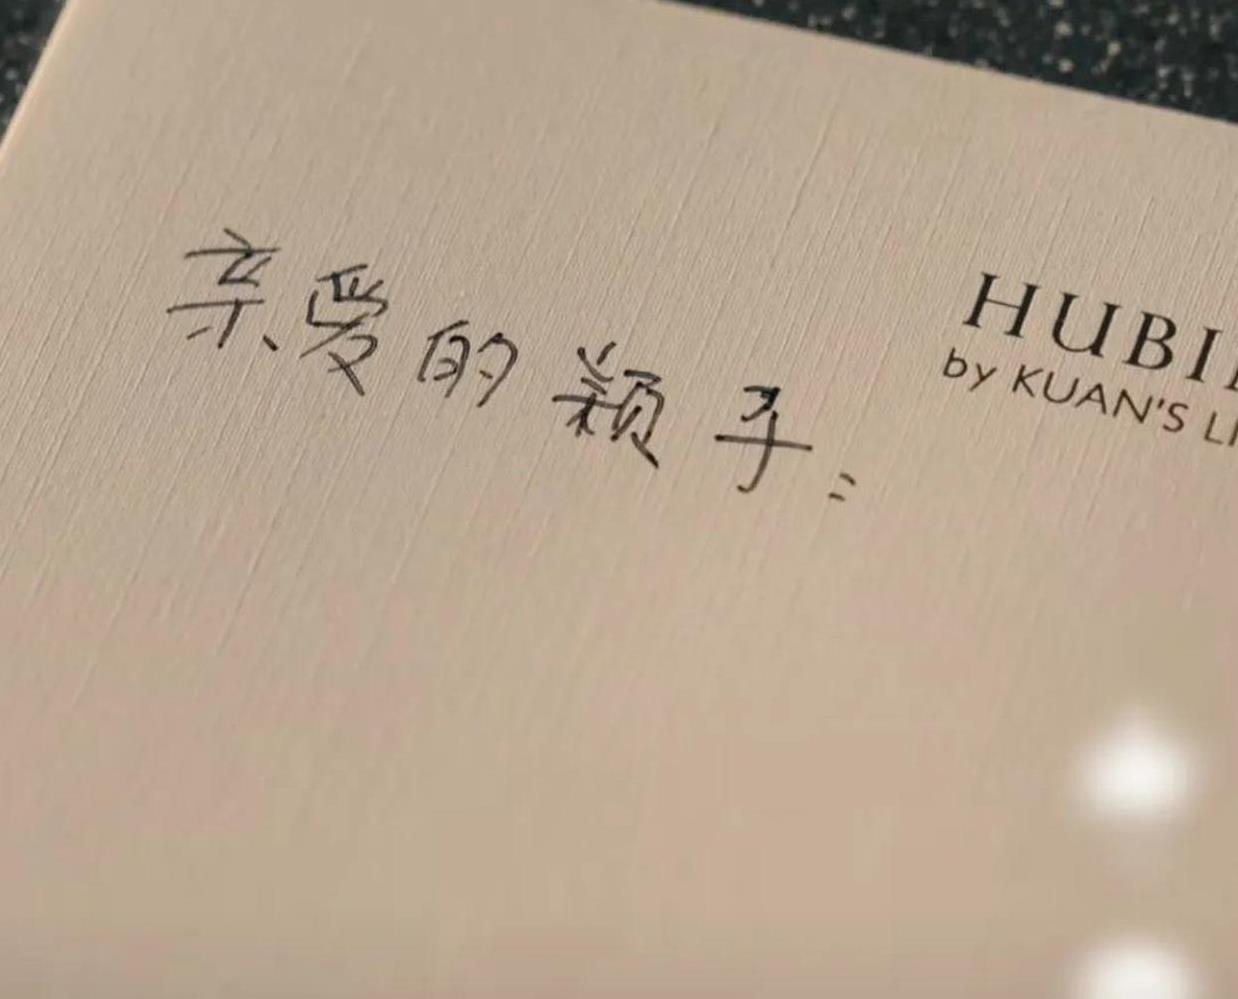 亲爱的颖子：
HUBI
by KUAN'S LI